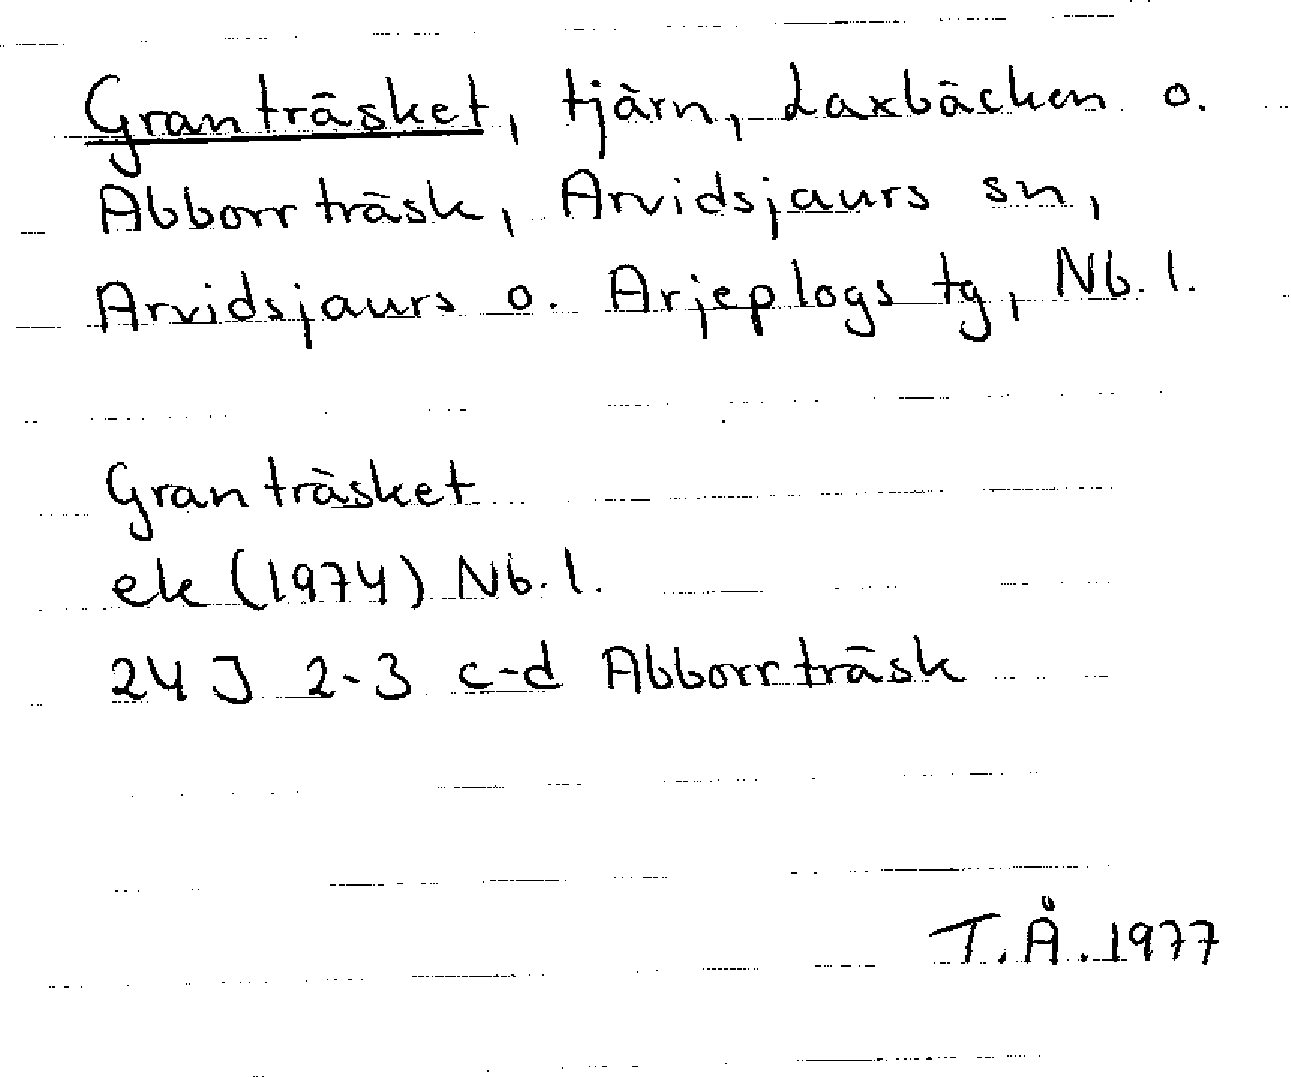 Granträsket, tjärn, Laxbäcken o.
Abborrträsk, Arvidsjaurs sn,
Arvidsjaurs o. Arjeplogs tg, Nb. l.
Granträsket
ek (1974) Nb. l.
24 J 2-3 c-d Abborrträsk
T. Å. 1977